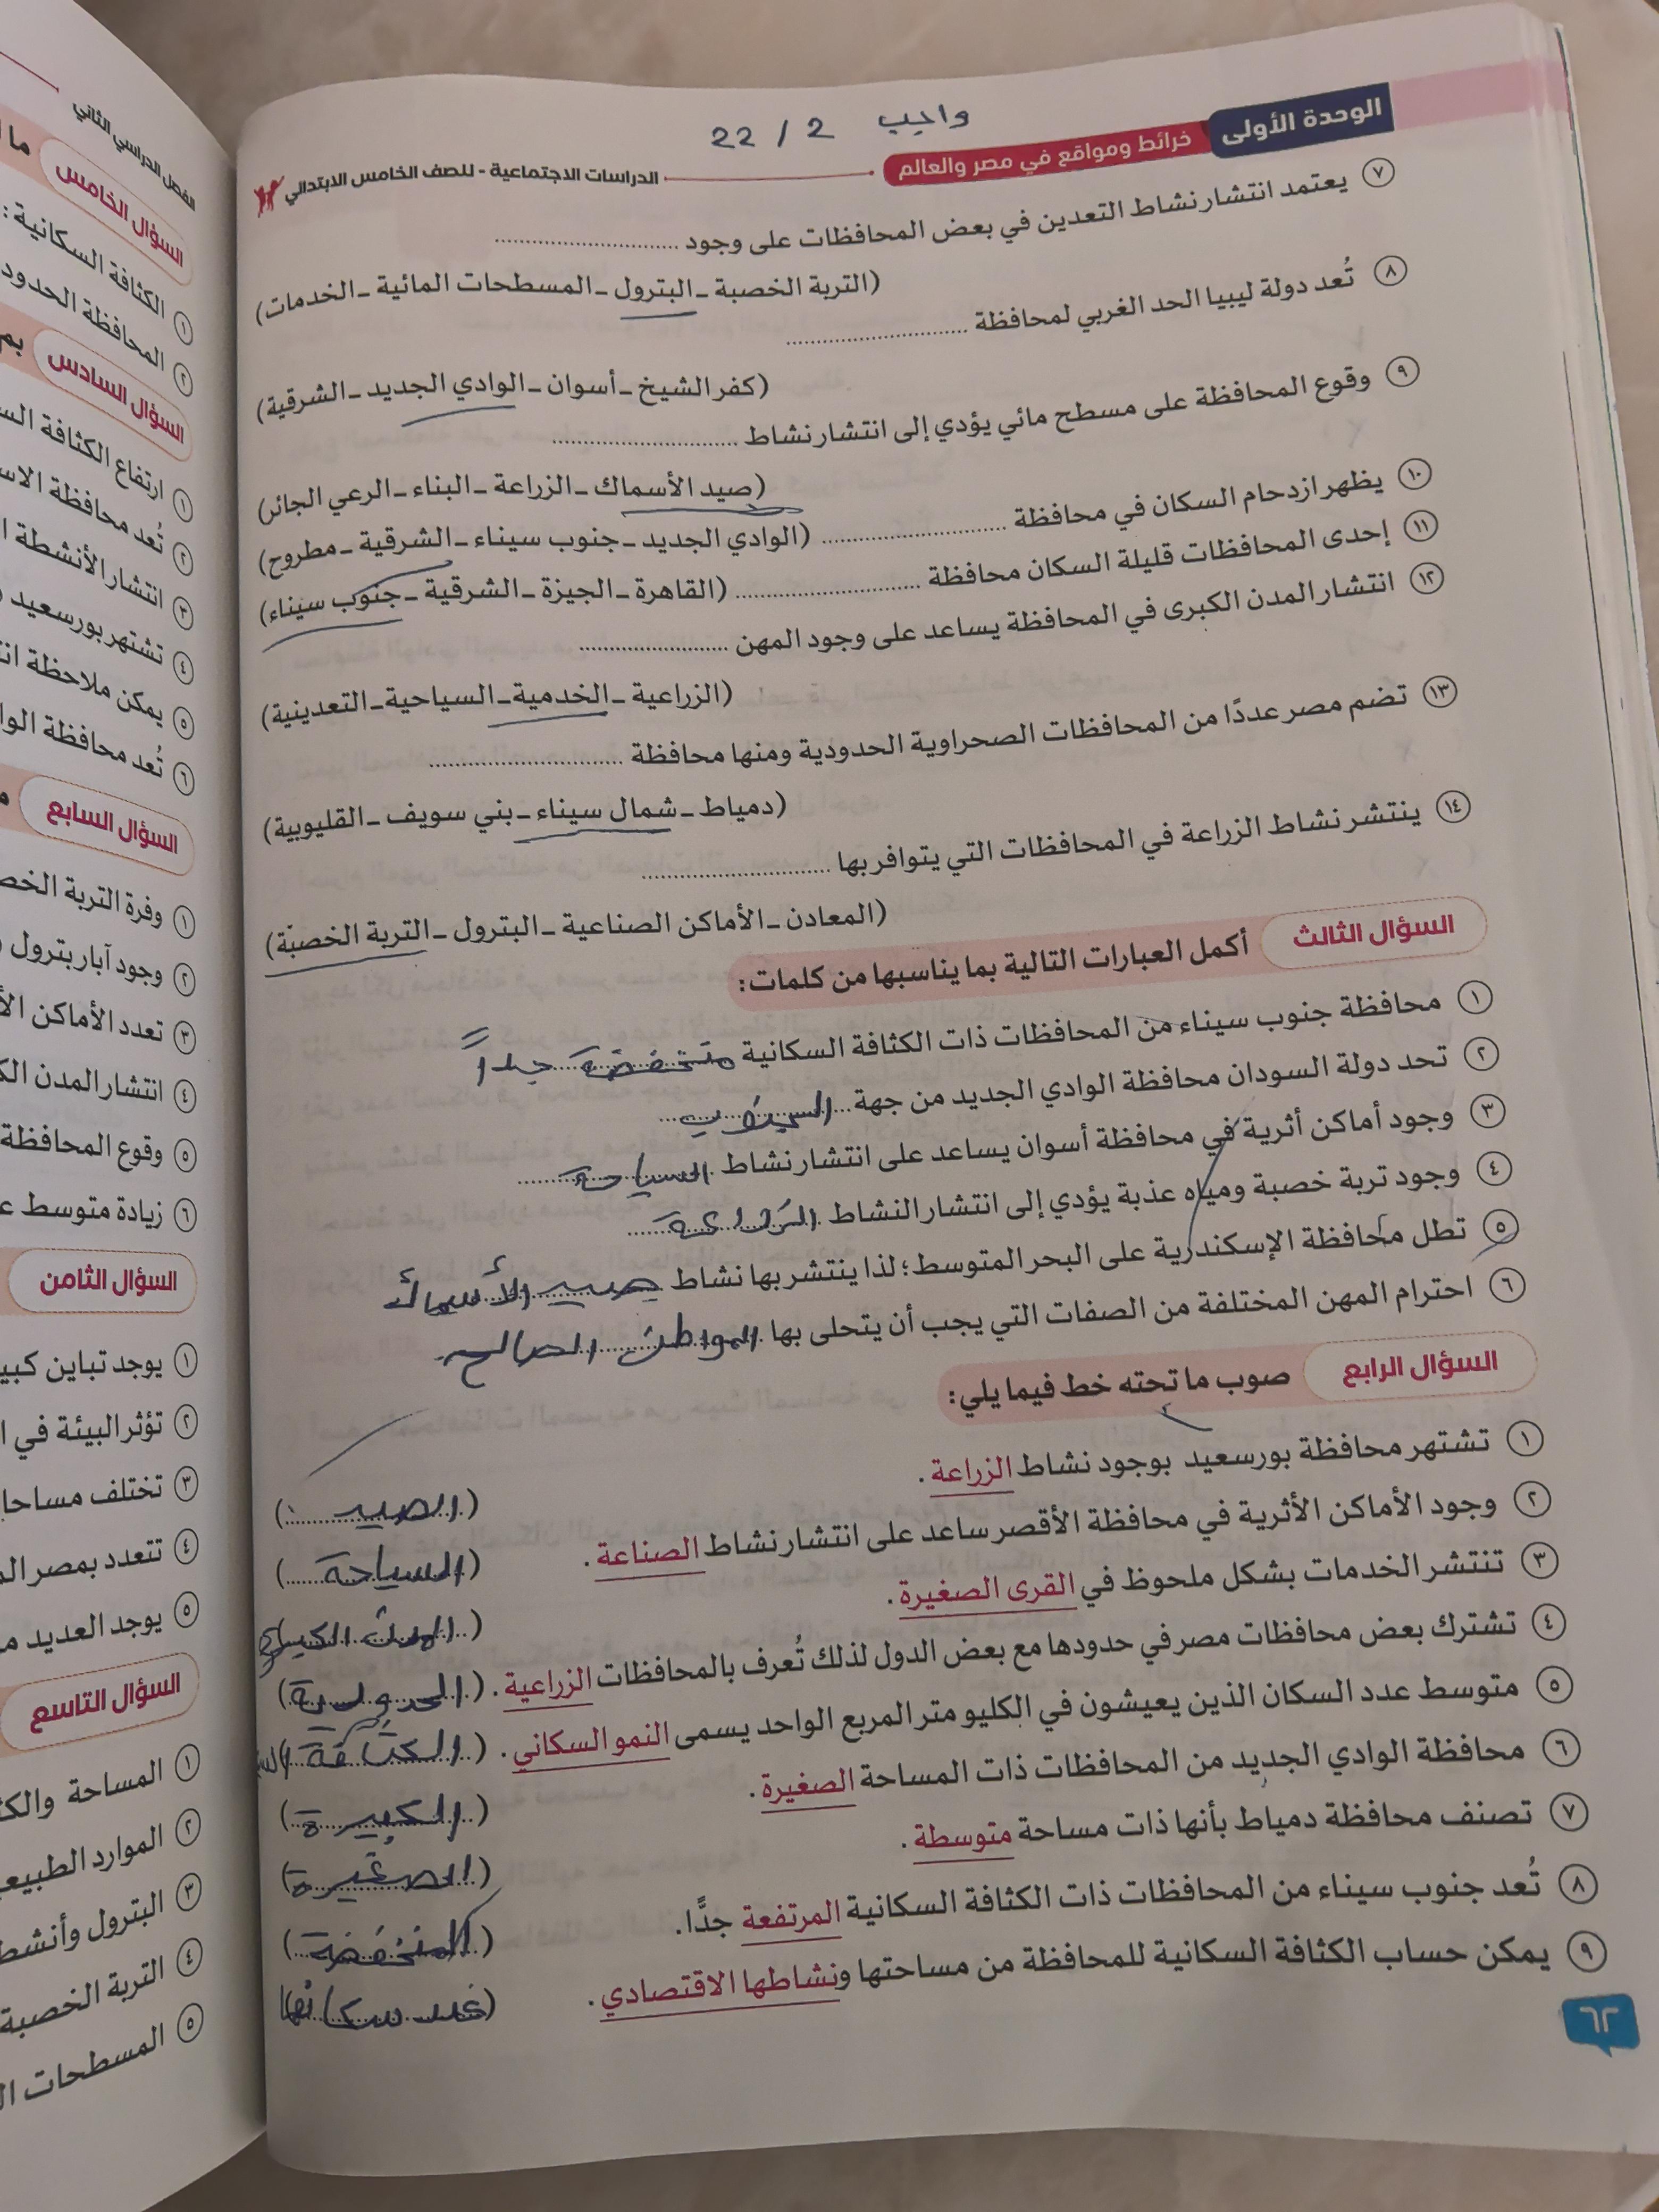 واجب 2 / 22
الوحدة الأولى خرائط ومواقع في مصر والعالم
الدراسات الاجتماعية - للصف الخامس الابتدائي
٧ يعتمد انتشار نشاط التعدين في بعض المحافظات على وجود ..............................
(التربة الخصبة – البترول – المسطحات المائية – الخدمات)
٨ تُعد دولة ليبيا الحد الغربي لمحافظة ..............................
(كفر الشيخ – أسوان – الوادي الجديد – الشرقية)
٩ وقوع المحافظة على مسطح مائي يؤدي إلى انتشار نشاط ..............................
(صيد الأسماك – الزراعة – البناء – الرعي الجائر)
١٠ يظهر ازدحام السكان في محافظة .............................. (الوادي الجديد – جنوب سيناء – الشرقية – مطروح)
١١ إحدى المحافظات قليلة السكان محافظة .............................. (القاهرة – الجيزة – الشرقية – جنوب سيناء)
١٢ انتشار المدن الكبرى في المحافظة يساعد على وجود المهن ..............................
(الزراعية – الخدمية – السياحية – التعدينية)
١٣ تضم مصر عددًا من المحافظات الصحراوية الحدودية ومنها محافظة ..............................
(دمياط – شمال سيناء – بني سويف – القليوبية)
١٤ ينتشر نشاط الزراعة في المحافظات التي يتوافر بها ..............................
(المعادن – الأماكن الصناعية – البترول – التربة الخصبة)
السؤال الثالث أكمل العبارات التالية بما يناسبها من كلمات:
١ محافظة جنوب سيناء من المحافظات ذات الكثافة السكانية منخفضة جداً
٢ تحد دولة السودان محافظة الوادي الجديد من جهة الجنوب
٣ وجود أماكن أثرية في محافظة أسوان يساعد على انتشار نشاط السياحة
٤ وجود تربة خصبة ومياه عذبة يؤدي إلى انتشار النشاط الزراعة
٥ تطل محافظة الإسكندرية على البحر المتوسط؛ لذا ينتشر بها نشاط صيد الأسماك
٦ احترام المهن المختلفة من الصفات التي يجب أن يتحلى بها المواطن الصالح
السؤال الرابع صوب ما تحته خط فيما يلي:
١ تشتهر محافظة بورسعيد بوجود نشاط الزراعة. (الصيد)
٢ وجود الأماكن الأثرية في محافظة الأقصر ساعد على انتشار نشاط الصناعة. (السياحة)
٣ تنتشر الخدمات بشكل ملحوظ في القرى الصغيرة. (المدن الكبيرة
٤ تشترك بعض محافظات مصر في حدودها مع بعض الدول لذلك تُعرف بالمحافظات الزراعية. (الحدودية)
٥ متوسط عدد السكان الذين يعيشون في الكليو متر المربع الواحد يسمى النمو السكاني. (الكثافة
٦ محافظة الوادي الجديد من المحافظات ذات المساحة الصغيرة. (الكبيرة)
٧ تصنف محافظة دمياط بأنها ذات مساحة متوسطة. (الصغيرة)
٨ تُعد جنوب سيناء من المحافظات ذات الكثافة السكانية المرتفعة جدًّا. (المنخفضة)
٩ يمكن حساب الكثافة السكانية للمحافظة من مساحتها ونشاطها الاقتصادي. (عدد سكانها
٦٢
الفصل الدراسي الثاني
السؤال الخامس
١ الكثافة السكانية:
٢ المحافظة
السؤال السادس
١ ارتفاع الكثافة
٢ تُعد محافظة
٣ انتشار الأنشطة
٤ تشتهر بورسعيد
٥ يمكن ملاحظة
٦ تُعد محافظة
السؤال السابع
١ وفرة التربة
٢ وجود آبار بترول
٣ تعدد الأماكن
٤ انتشار المدن
٥ وقوع المحافظة
٦ زيادة متوسط
السؤال الثامن
١ يوجد تباين
٢ تؤثر البيئة في
٣ تختلف
٤ تتعدد بمصر
٥ يوجد العديد
السؤال التاسع
١ المساحة
٢ الموارد
٣ البترول
٤ التربة الخصبة
٥ المسطحات